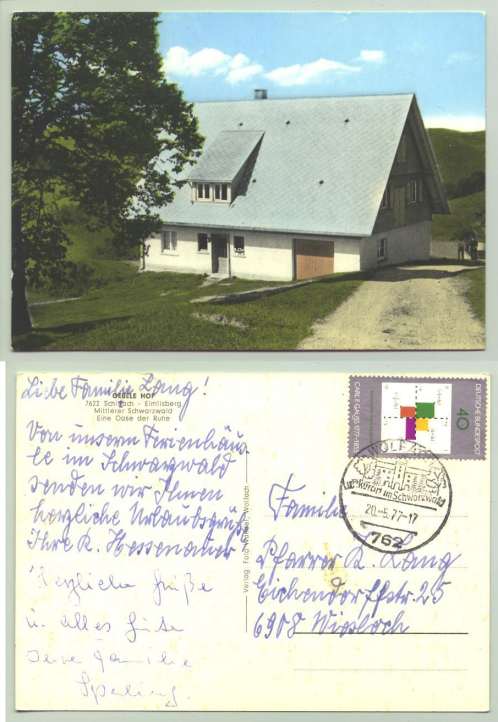 Liebe Familie Lang!
GEBELE HOF
7622 Schiltach - Eimlisberg
Mittlerer Schwarzwald
Eine Oase der Ruhe
Von unserm Ferienhäus-
le im Schwarzwald
senden wir Ihnen
herzliche Urlaubsgrüße
Ihre K. Hessenauer
Herzliche Grüße
u. alles Gute
Familie
Verlag: Foto
CARL F. GAUSS 1777-1855
DEUTSCHE BUNDESPOST
40
WOLFACH
Luftkurort im Schwarzwald
20.-5.77-17
762
Familie
Pfarrer K. Lang
Eichendorffstr. 25
6908 Wiesloch